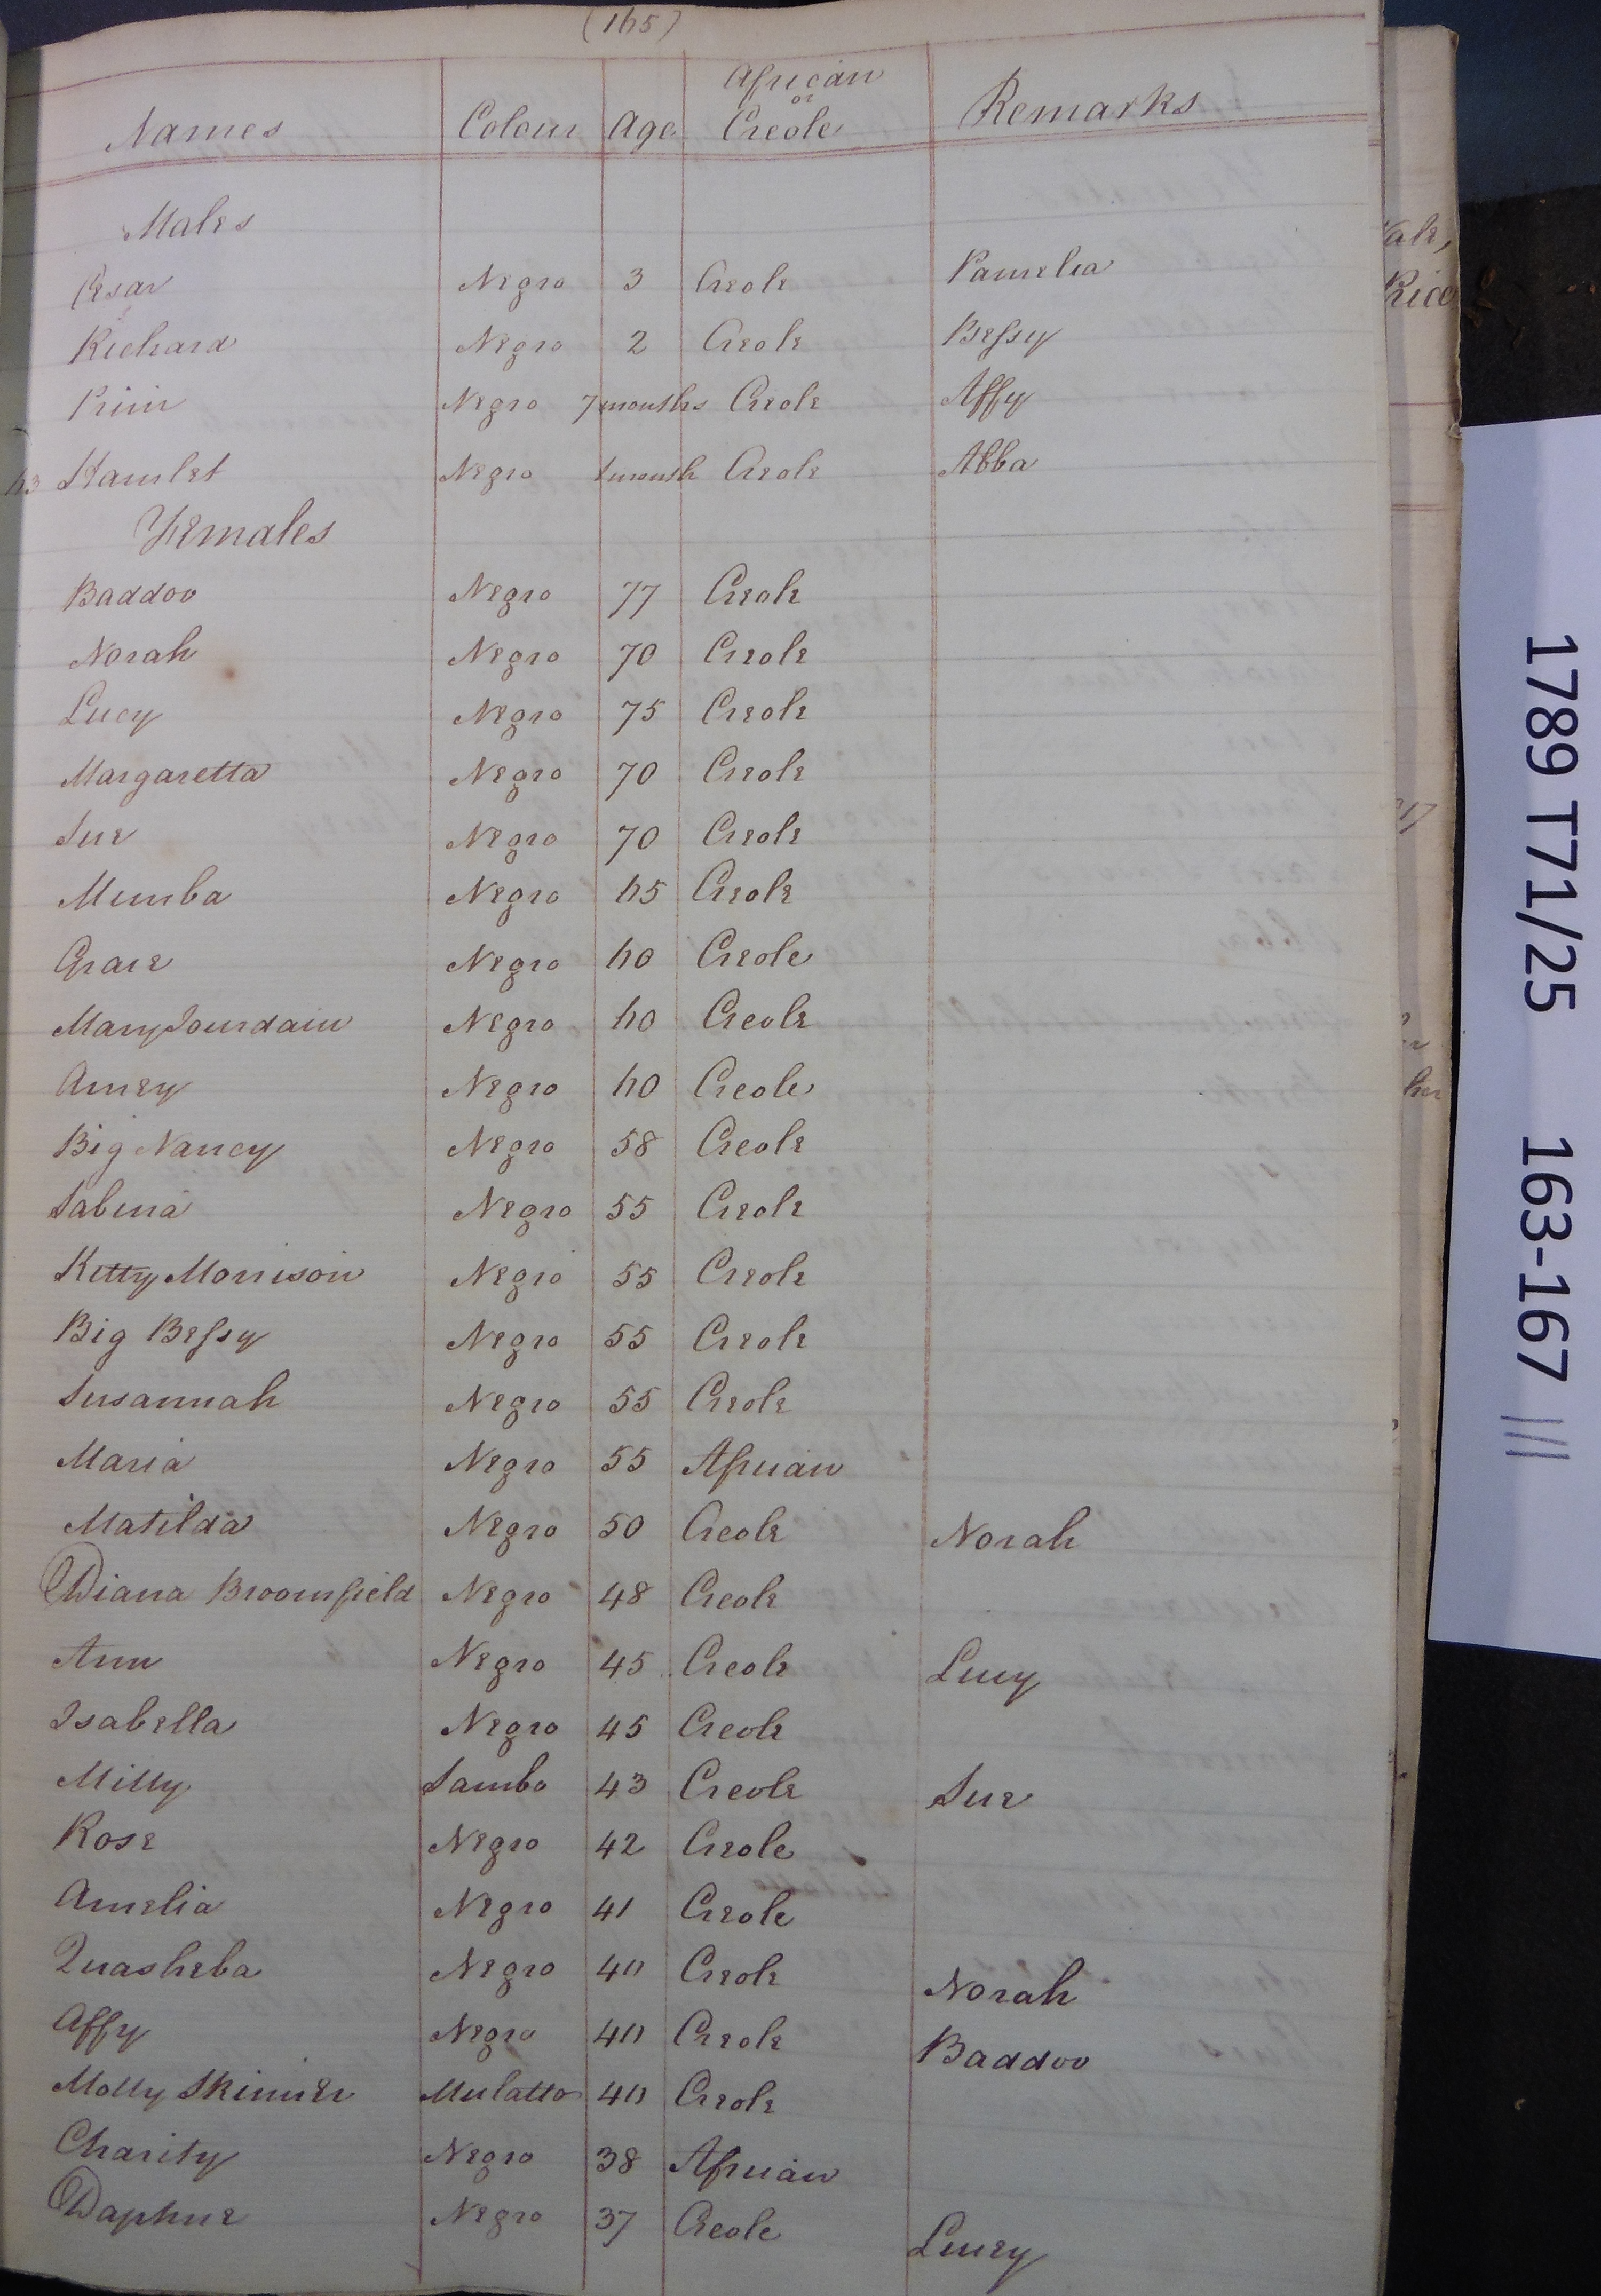 (165)
Names Colour Age African or Creole Remarks
Males
Cesar Negro 3 Creole Pamelia
Richard Negro 2 Creole Bessy
Prim Negro 7 months Creole Affy
63 Hamlet Negro 1 month Creole Abba
Females
Baddoo Negro 77 Creole
Norah Negro 70 Creole
Lucy Negro 75 Creole
Margaretta Negro 70 Creole
Sue Negro 70 Creole
Mimba Negro 65 Creole
Grace Negro 60 Creole
Mary Jourdain Negro 60 Creole
Amey Negro 60 Creole
Big Nancy Negro 58 Creole
Sabina Negro 55 Creole
Kitty Morrison Negro 55 Creole
Big Bessy Negro 55 Creole
Susannah Negro 55 Creole
Maria Negro 55 African
Matilda Negro 50 Creole Norah
Diana Broomfield Negro 48 Creole
Ann Negro 45 Creole Lucy
Isabella Negro 45 Creole
Milly Sambo 43 Creole Sue
Rose Negro 42 Creole
Amelia Negro 41 Creole
Quasheba Negro 40 Creole Norah
Affy Negro 40 Creole Baddoo
Molly Skinner Mulatto 40 Creole
Charity Negro 38 African
Daphne Negro 37 Creole Lucy
1789 T71/25 163-167